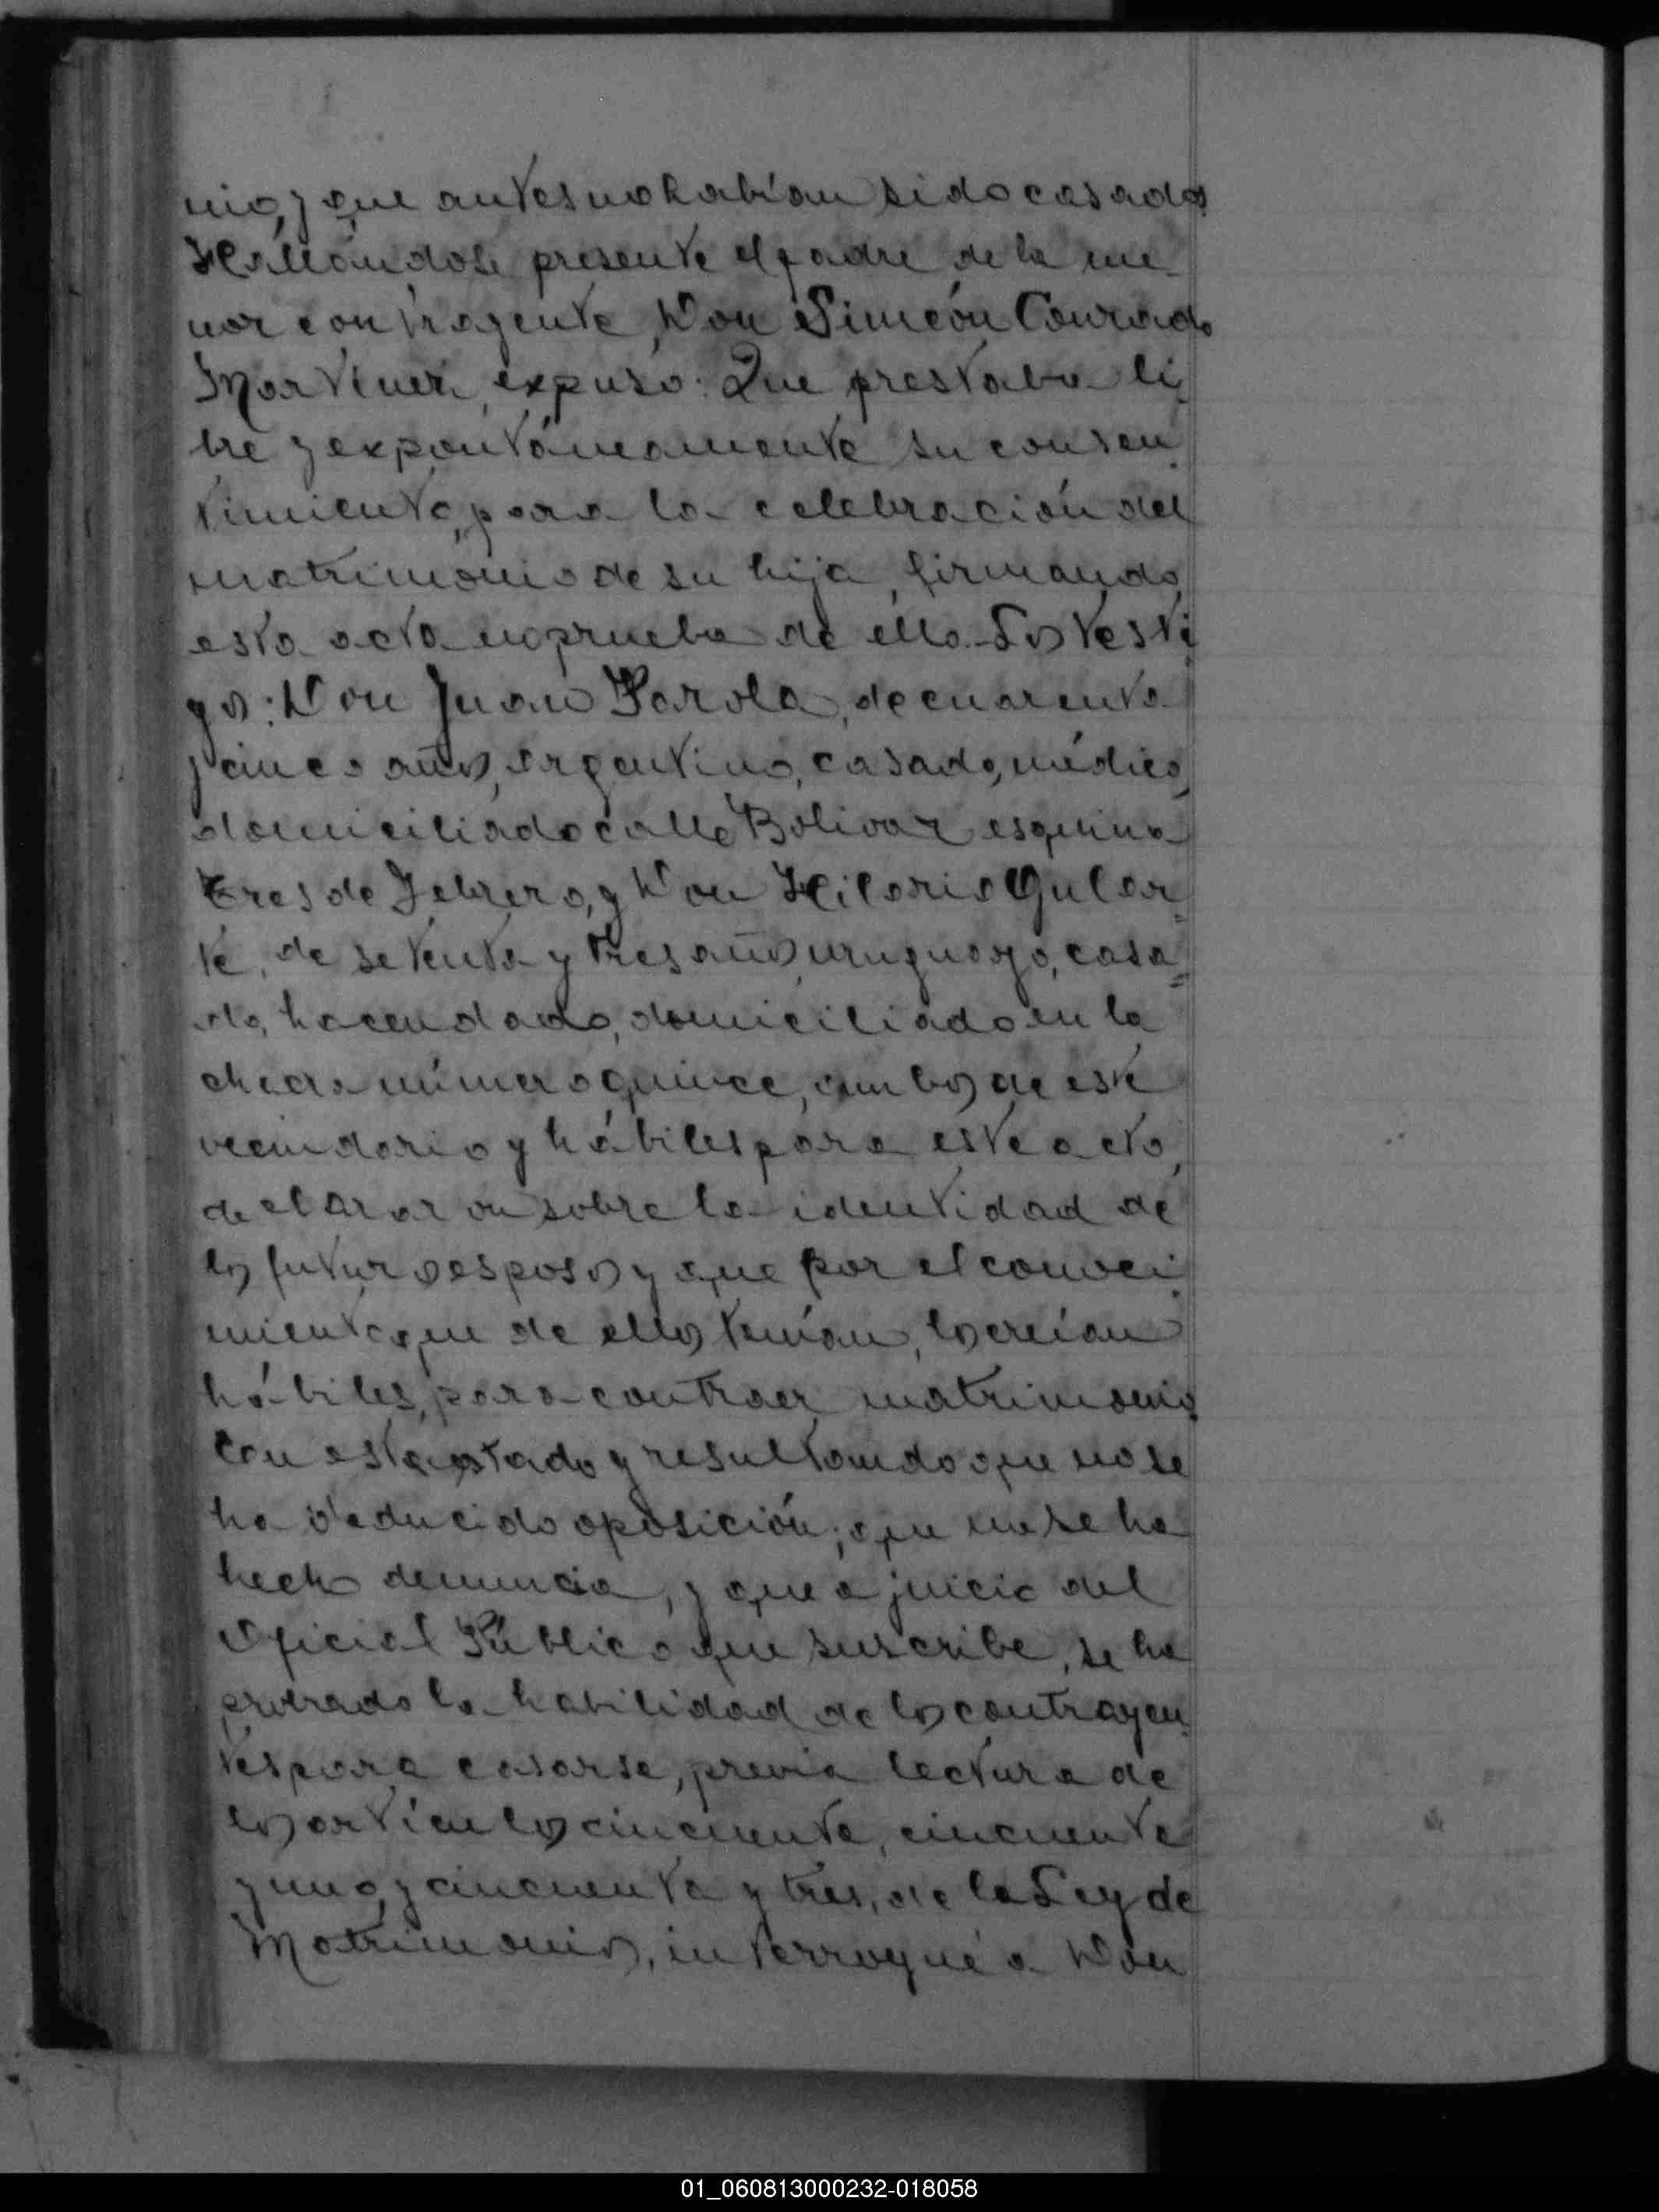 nio, y que antes no habían sido casados
Hallándose presente el padre de la me-
nor contrayente, Don Simeón Conrado
Martinez, expuso: Que prestaba li-
bre y expontáneamente su consen-
timiento, para la celebración del
matrimonio de su hija, firmando
esta acta en prueba de ello. Los testi-
gos: Don Juan Parola, de cuarenta
y cinco años, argentino, casado, médico,
domiciliado calle Bolivar esquina
Tres de Febrero, y Don Hilario Gular-
te, de setenta y tres años, uruguayo, casa-
do, hacendado, domiciliado en la
chacra número quince, ambos de este
vecindario y hábiles para este acto,
declararon sobre la identidad de
los futuros esposos y que por el conoci-
miento que de ellos tenían, los creían
hábiles, para contraer matrimonio
Con este estado y resultando que no se
ha deducido oposición; que no se ha
hecho denuncia, y que a juicio del
Oficial Público que suscribe, se ha
probado la habilidad de los contrayen-
tes para casarse, previa lectura de
los artículos cincuenta, cincuenta
y uno, y cincuenta y tres, de la Ley de
Matrimonios, interrogué a Don
01_060813000232-018058